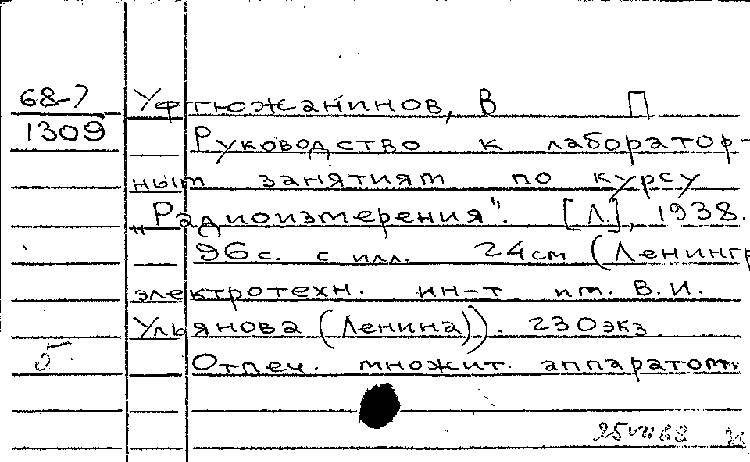 68-7 Уфтюжанинов, В П
1309 Руководство к лаборатор-
ным занятиям по курсу
„Радиоизмерения". [Л.], 1938.
96 с. с илл. 24 см (Ленингр
электротехн. ин-т им. В. И.
Ульянова (Ленина)). 230 экз.
5 Отпеч. множит. аппаратом
25 VII 68